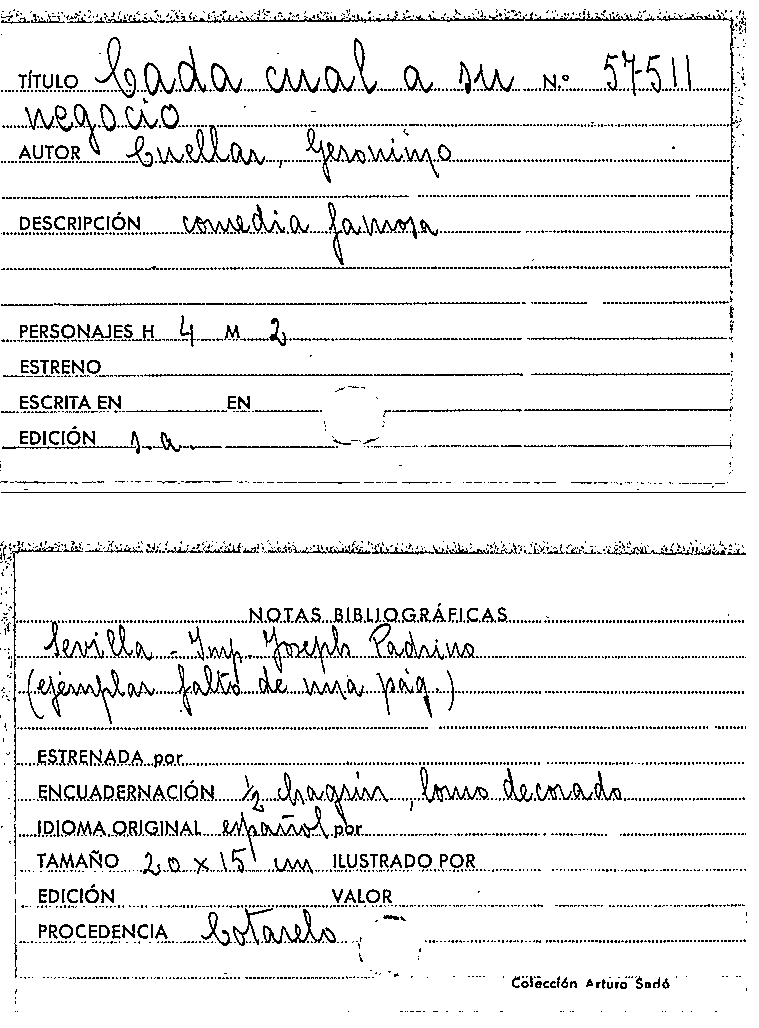 TÍTULO Cada cual a su N.º 57511
negocio
AUTOR Cuellar, Geronimo
DESCRIPCIÓN comedia famosa
PERSONAJES H 4 M 2
ESTRENO
ESCRITA EN EN
EDICIÓN s.a.
NOTAS BIBLIOGRÁFICAS
Sevilla - Imp. Joseph Padrino
(ejemplar falto de una pág.)
ESTRENADA por
ENCUADERNACIÓN ½ chagrin, lomo decorado
IDIOMA ORIGINAL español por
TAMAÑO 20 x 15 cm ILUSTRADO POR
EDICIÓN VALOR
PROCEDENCIA Cotarelo
Colección Arturo Sedó